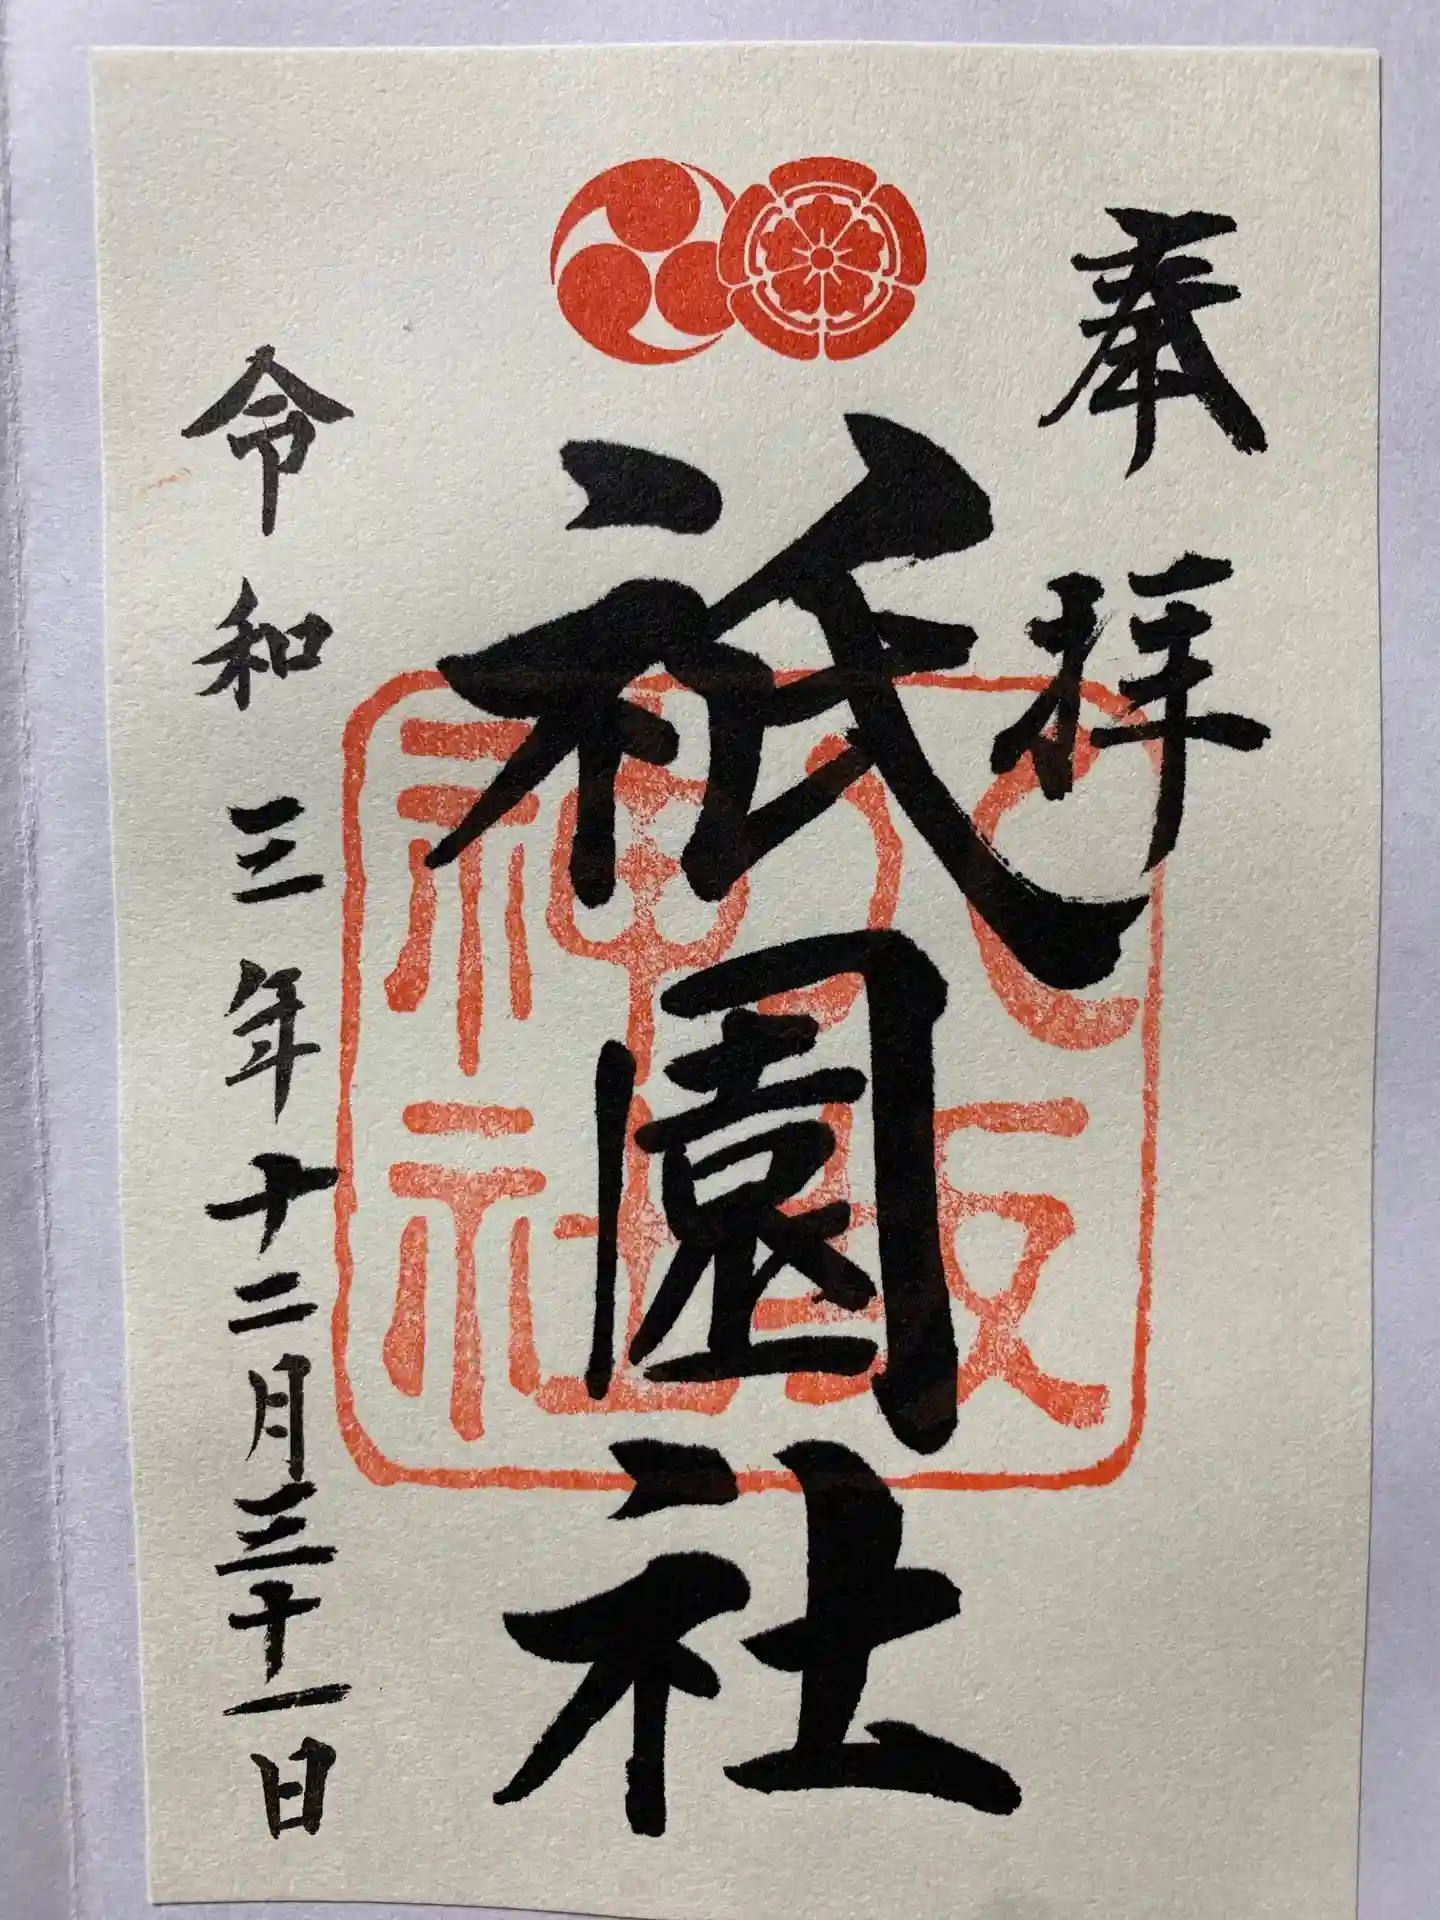 奉拝
祇園社
八坂神社
令和三年十二月三十一日